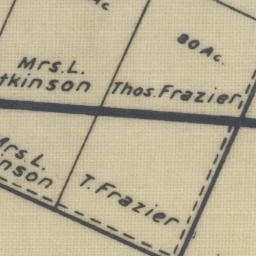 Ac
80 Ac.
Mrs. L.
tkinson
Thos. Frazier
Mrs. L.
inson
T. Frazier